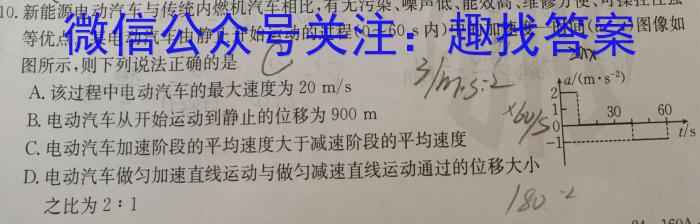 10. 新能源电动汽车与传统内燃机汽车相比,有无污染、噪声低、能效高、维修方便、可操控性强
等优点 电动汽车由静止开始运动的过程(0~60 s 内) 加速度 时间 图像如
图所示,则下列说法正确的是
微信公众号关注:趣找答案
C
3/m·s-2
A. 该过程中电动汽车的最大速度为 20 m/s
B. 电动汽车从开始运动到静止的位移为 900 m
C. 电动汽车加速阶段的平均速度大于减速阶段的平均速度
D. 电动汽车做匀加速直线运动与做匀减速直线运动通过的位移大小
之比为 2∶1
×60/s
180
a/(m·s⁻²)
2
1
0
-1
30
60
t/s